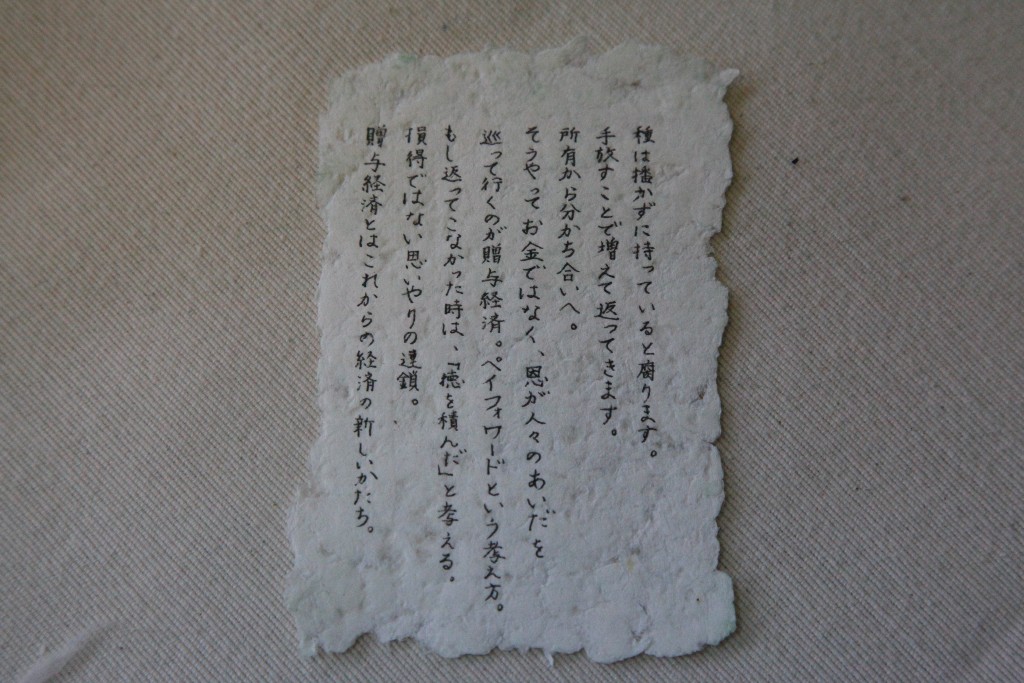 種は播かずに持っていると腐ります。
手放すことで増えて返ってきます。
所有から分かち合いへ。
そうやってお金ではなく、恩が人々のあいだを
巡って行くのが贈与経済。ペイフォワードという考え方。
もし返ってこなかった時は、「徳を積んだ」と考える。
損得ではない思いやりの連鎖。
贈与経済とはこれからの経済の新しいかたち。